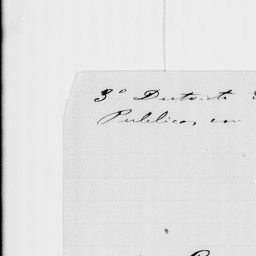 3º Districto
Publicas, em